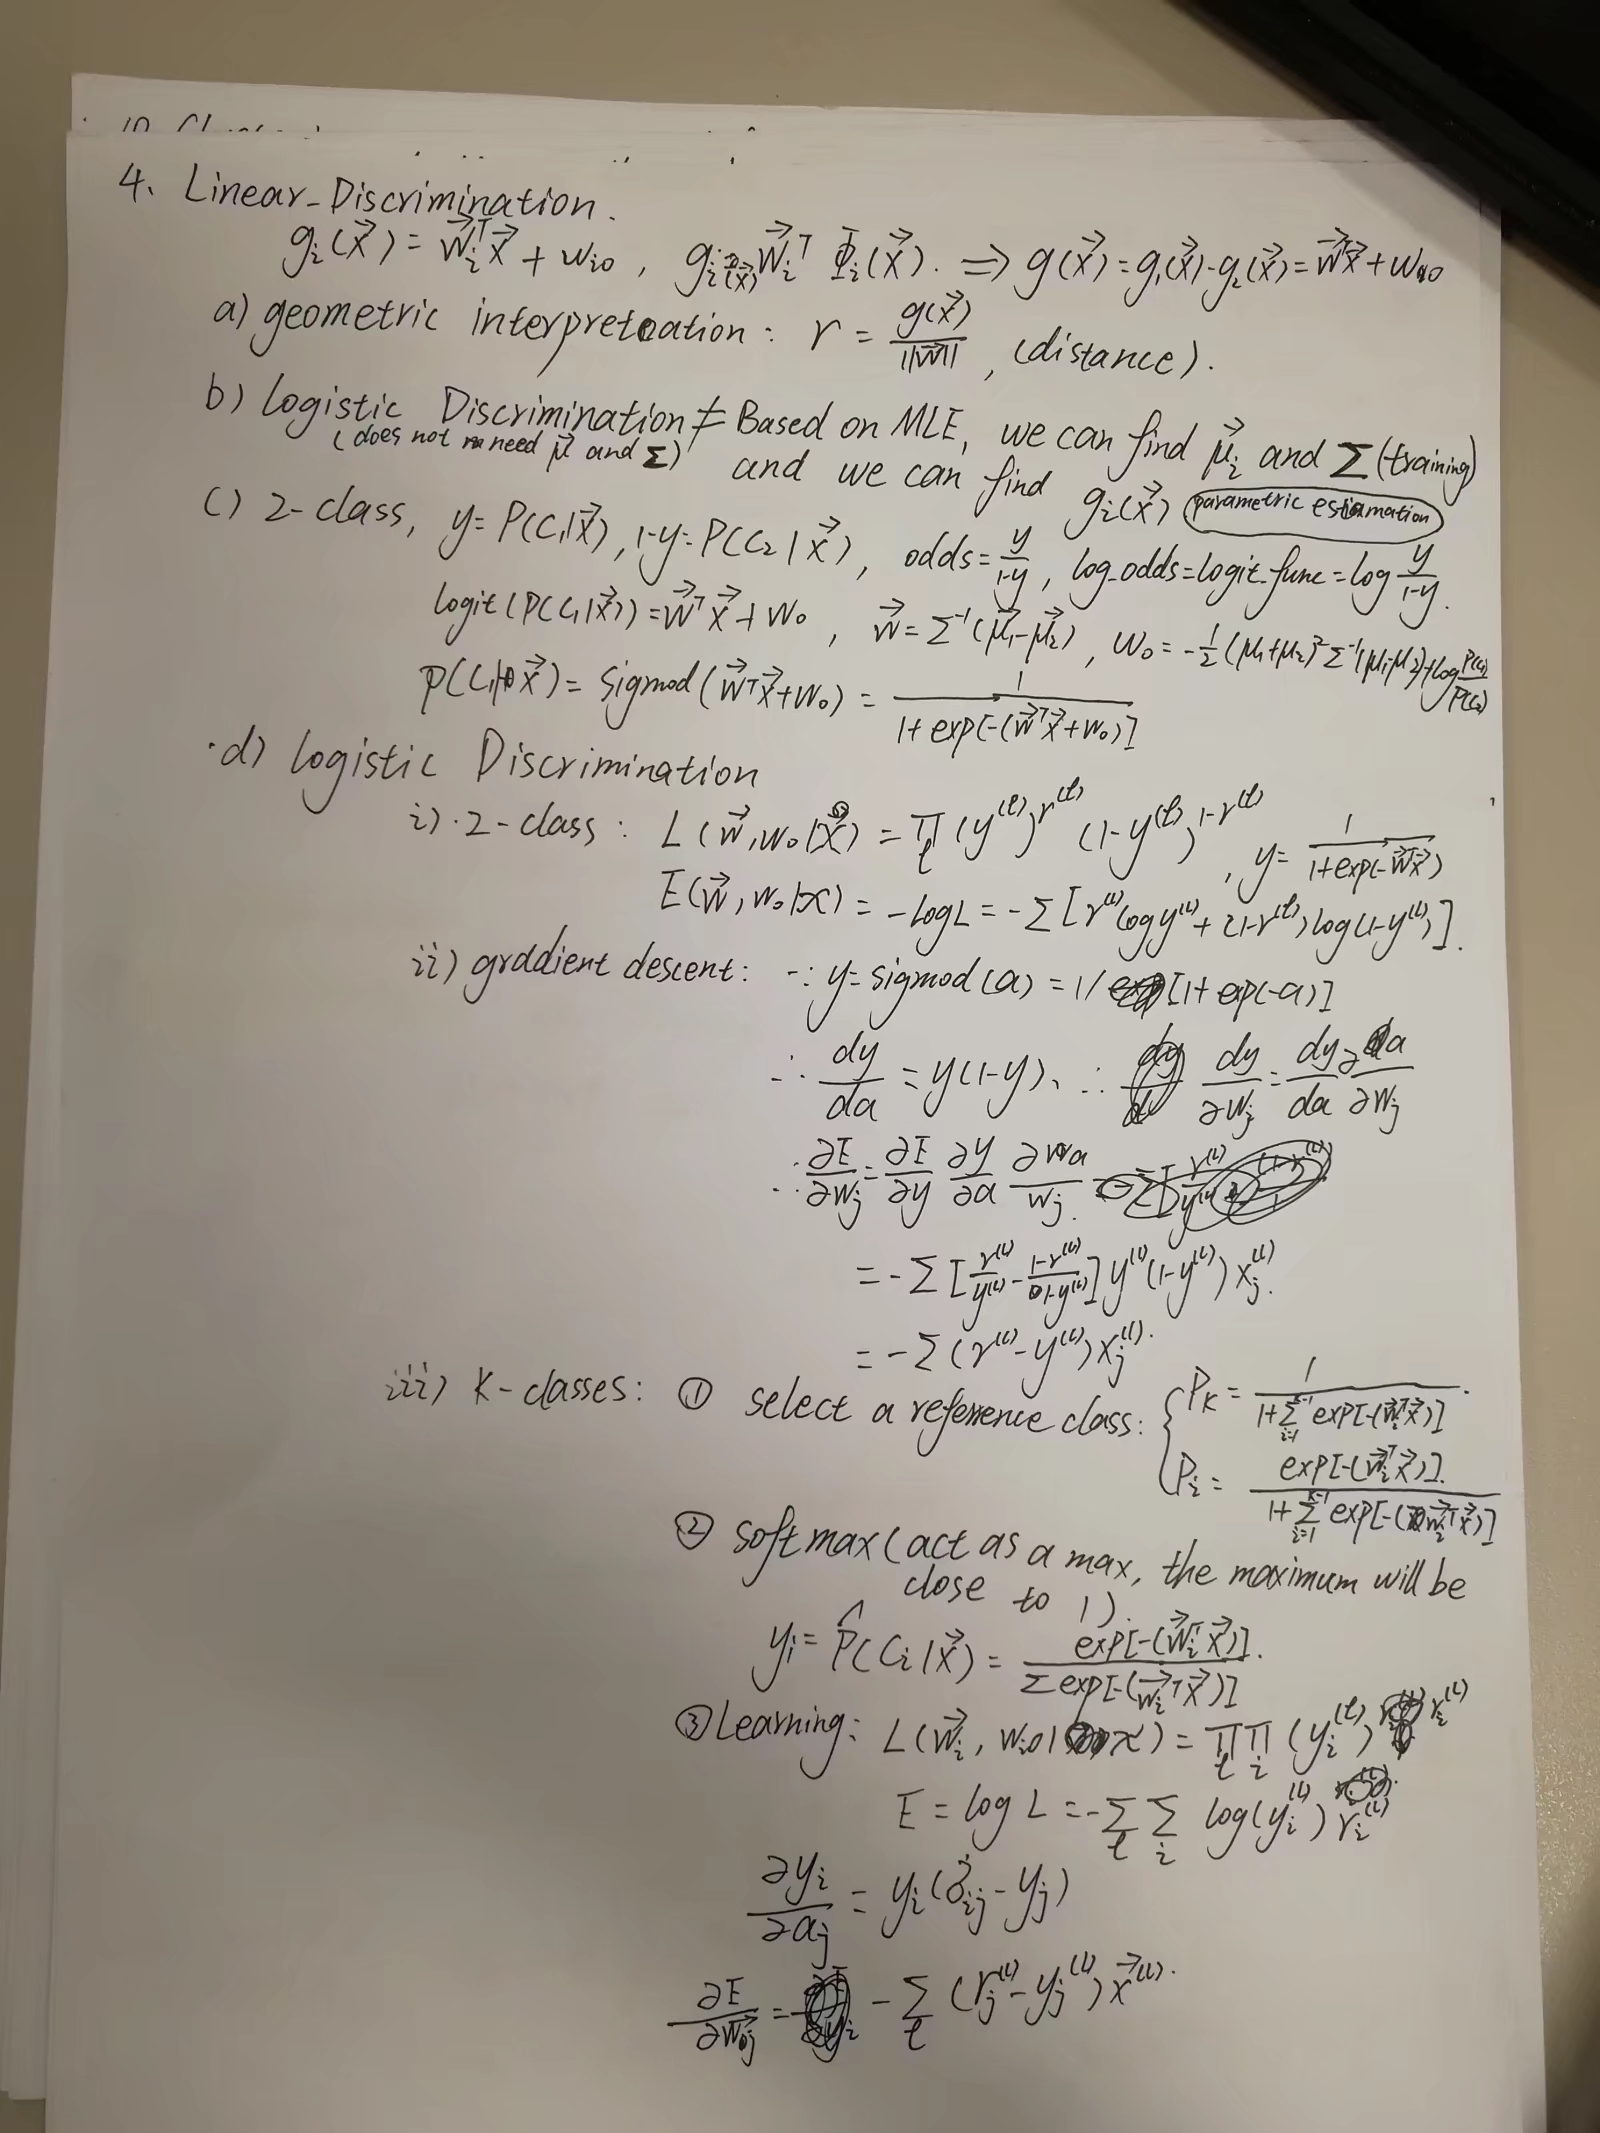 4. Linear-Discrimination.
g_i(x⃗) = w⃗_i^T x⃗ + w_i0 , g_i(x⃗) = w⃗_i^T Φ_i(x⃗). ⇒ g(x⃗) = g_1(x⃗) - g_2(x⃗) = w⃗^T x⃗ + w_0
a) geometric interpretation : r = g(x⃗) / ||w⃗|| , (distance).
b) Logistic Discrimination ≠ Based on MLE, we can find μ⃗_i and Σ (training)
(does not need μ⃗ and Σ) and we can find g_i(x⃗) (parametric estimation)
c) 2-class, y = P(C_1|x⃗), 1-y = P(C_2|x⃗), odds = y/(1-y), log-odds = logit-func = log y/(1-y).
logit(P(C_1|x⃗)) = w⃗^T x⃗ + w_0 , w⃗ = Σ^-1(μ⃗_1 - μ⃗_2), w_0 = -1/2 (μ_1+μ_2)^T Σ^-1(μ_1-μ_2) + log P(C_1)/P(C_2)
P(C_1|x⃗) = sigmod(w⃗^T x⃗ + w_0) = 1 / (1 + exp[-(w⃗^T x⃗ + w_0)])
d) Logistic Discrimination
i) 2-class : L(w⃗, w_0|X) = Π_t (y^(t))^r^(t) (1-y^(t))^1-r^(t) , y = 1 / (1+exp(-w⃗^T x⃗))
E(w⃗, w_0|X) = -log L = -Σ[r^(t) log y^(t) + (1-r^(t)) log(1-y^(t))].
ii) graddient descent: ∵ y = sigmod(a) = 1/[1+exp(-a)]
∴ dy/da = y(1-y), ∴ dy/∂w_j = dy/da ∂a/∂w_j
∴ ∂E/∂w_j = ∂E/∂y ∂y/∂a ∂a/w_j
= -Σ[r^(t)/y^(t) - (1-r^(t))/(1-y^(t))] y^(t)(1-y^(t)) x_j^(t).
= -Σ(r^(t) - y^(t)) x_j^(t).
iii) K-classes: ① select a reference class: { P_K = 1 / (1+Σ_{i=1}^{K-1} exp[-(w⃗_i^T x⃗)]).
P_i = exp[-(w⃗_i^T x⃗)] / (1+Σ_{i=1}^{K-1} exp[-(w⃗_i^T x⃗)])
② softmax (act as a max, the maximum will be
close to 1).
y_i = P̂(C_i|x⃗) = exp[-(w⃗_i^T x⃗)] / Σ exp[-(w⃗_i^T x⃗)].
③ Learning: L(w⃗_i, w_i0|X) = Π_t Π_i (y_i^(t))^r_i^(t)
E = log L = -Σ_t Σ_i log(y_i^(t)) r_i^(t)
∂y_i/∂a_j = y_i(δ_ij - y_j)
∂E/∂w⃗_j = -Σ_t (r_j^(t) - y_j^(t)) x⃗^(t).